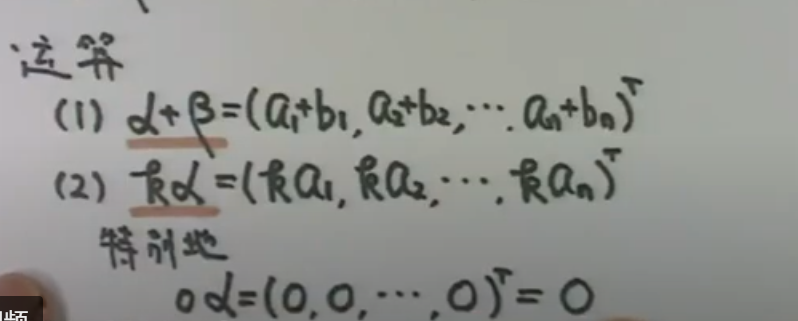 运算
(1) α+β=(a₁+b₁, a₂+b₂, ⋯, aₙ+bₙ)ᵀ
(2) kα=(ka₁, ka₂, ⋯, kaₙ)ᵀ
特别地
0α=(0,0,⋯,0)ᵀ=0
频